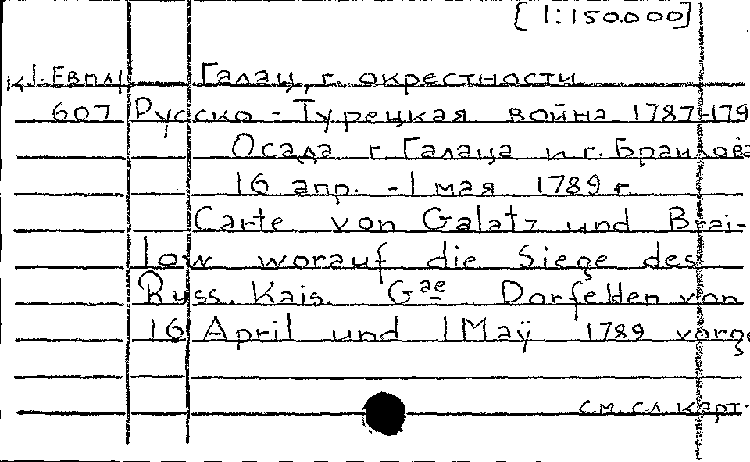 [1:150.000]
К1-Евпл Галац, г. окрестности
607 Русско-Турецкая война 1787-179
Осада г. Галаца и г. Браилова
16 апр. - 1 мая 1789 г.
Carte von Galatz und Brai-
low worauf die Siege des
Russ. Kais. Gae Dorfelden von
16 April und 1 Maÿ 1789 vorge
см. сл. карт.